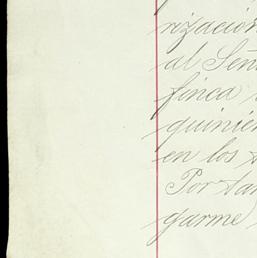 rización
al Señ
finca
quinien
en los
Por tan
garme